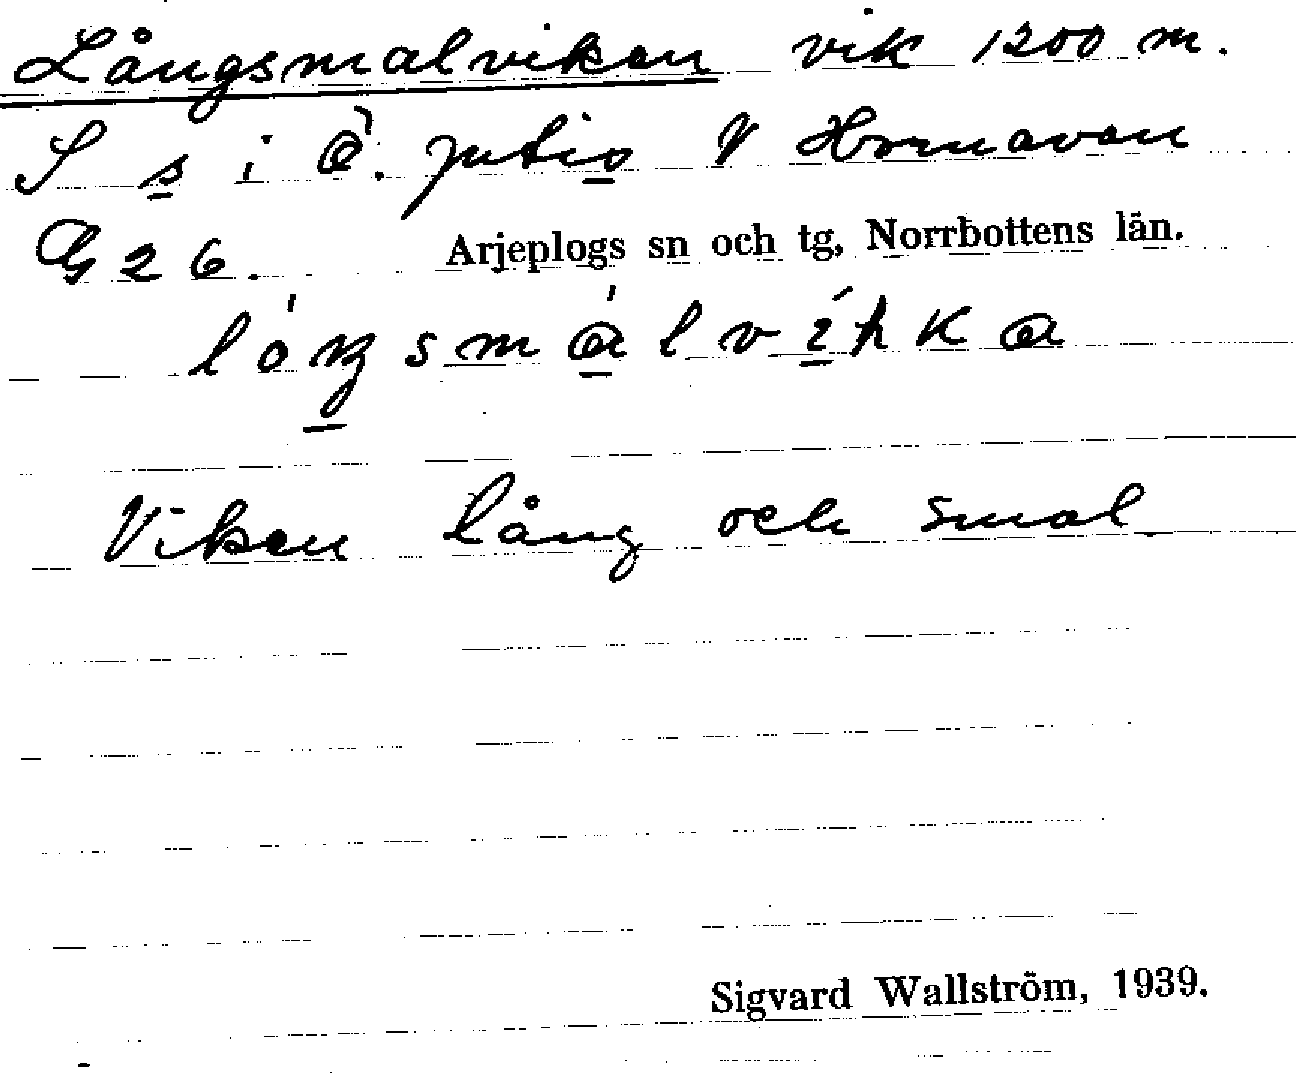 Långsmalviken vik 1200 m.
S s i
V Hornavan
G 26.
Arjeplogs sn och tg, Norrbottens län.
Viken lång och smal
Sigvard Wallström, 1939.